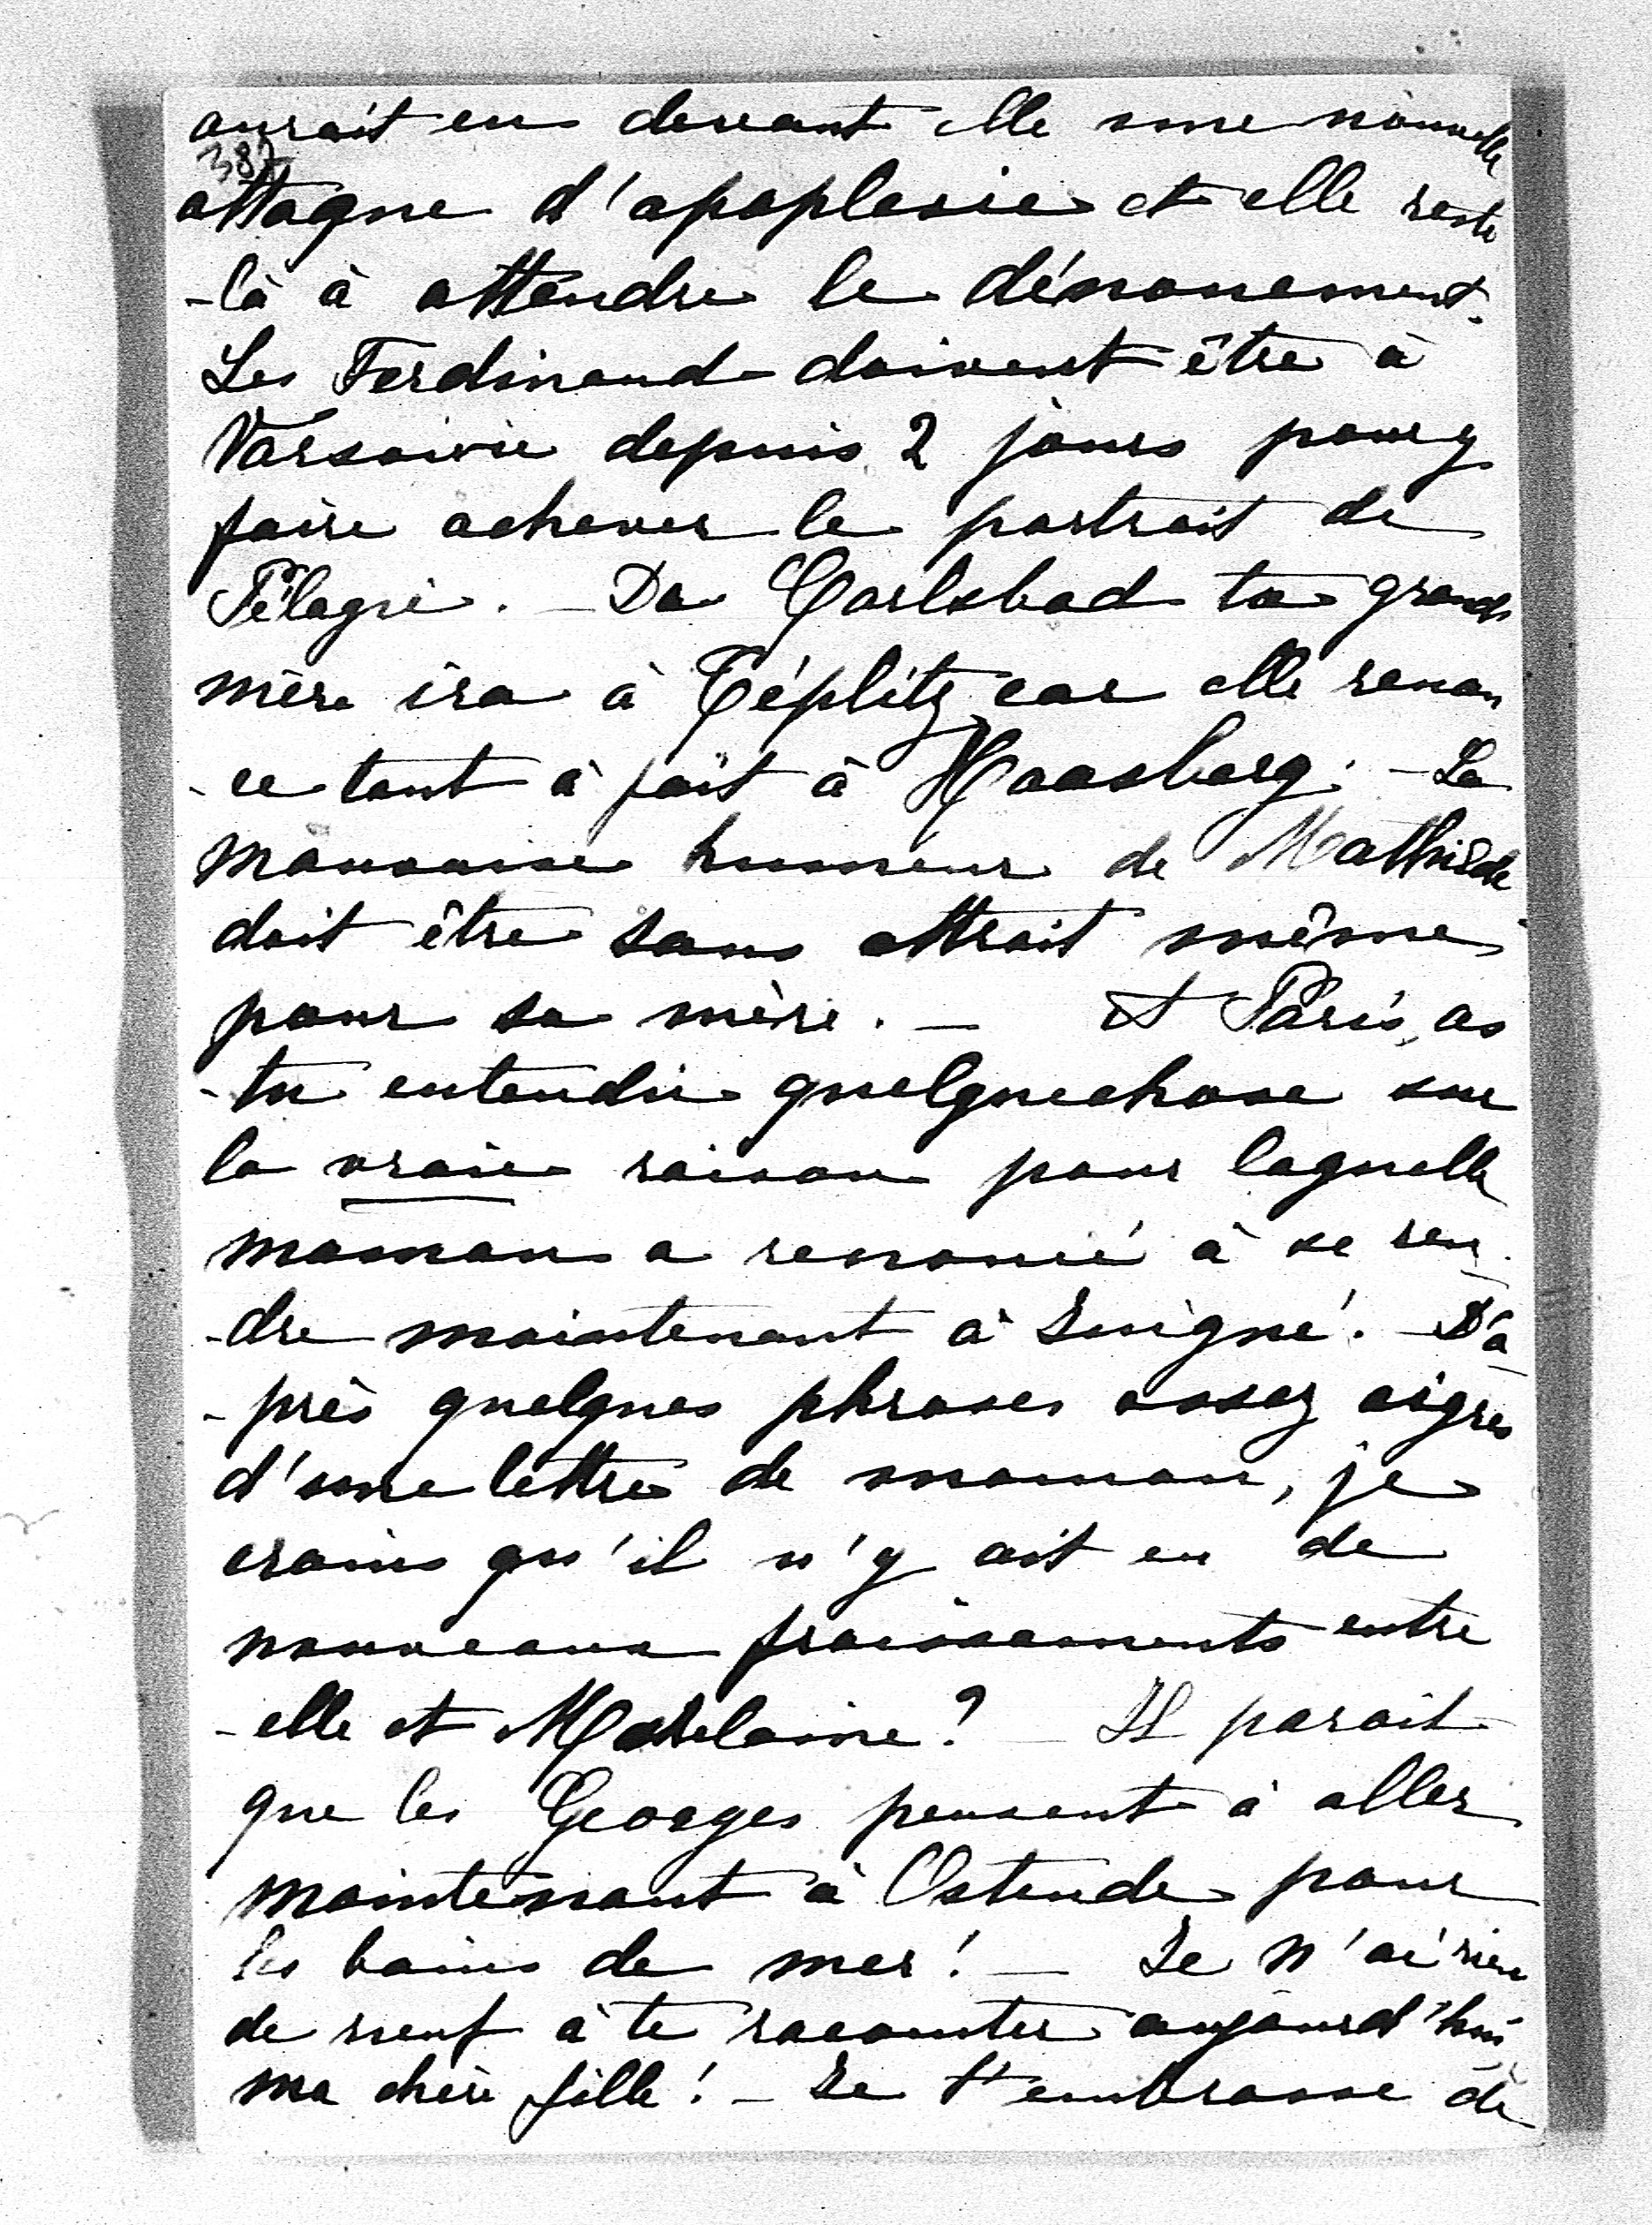 aurait eu devant elle une nouvelle
387
attaque d'apoplexie et elle reste
-là à attendre le dénouement.
Les Ferdinand doivent être à
Varsovie depuis 2 jours pour y
faire achever le portrait de
Pélagie. — De Carlsbad ta grand
mère ira à Téplitz car elle renon
-ce tout à fait à Haasberg. — La
mauvaise humeur de Mathilde
doit être sans attrait même
pour sa mère. — A Paris, as
-tu entendu quelquechose sur
la vraie raison pour laquelle
maman a renoncé à se ren
-dre maintenant à . — D'a
-près quelques phrases assez aigres
d'une lettre de maman, je
crains qu'il n'y ait eu de
nouveaux froissements entre
-elle et Madelaine? — Il parait
que les Georges pensent à aller
maintenant à Ostende pour
les bains de mer! — Je n'ai rien
de neuf à te raconter aujourd'hui
ma chère fille! — Je t'embrasse de